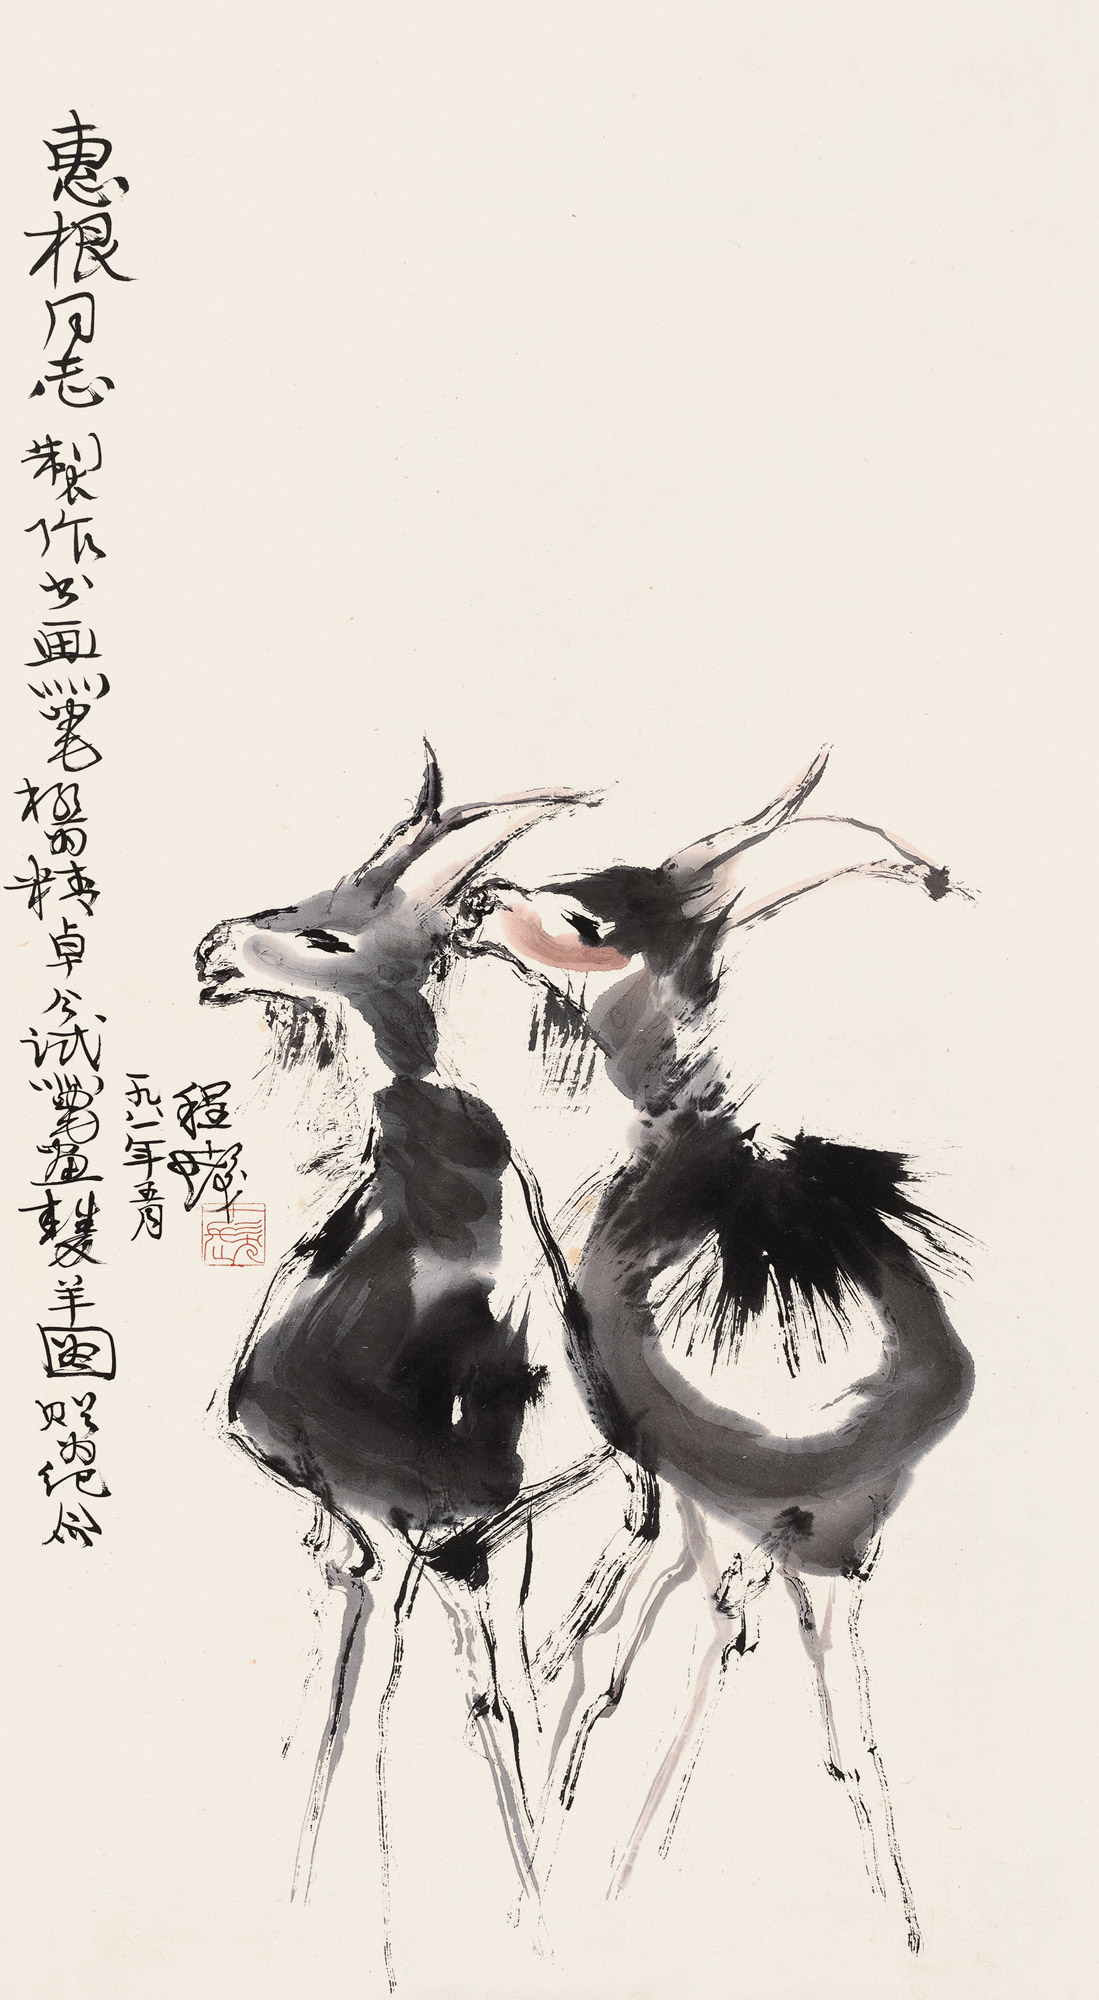 惠根同志製作书画笔极为精卓今试笔画双羊图赠为纪念
一九八一年五月
程十发